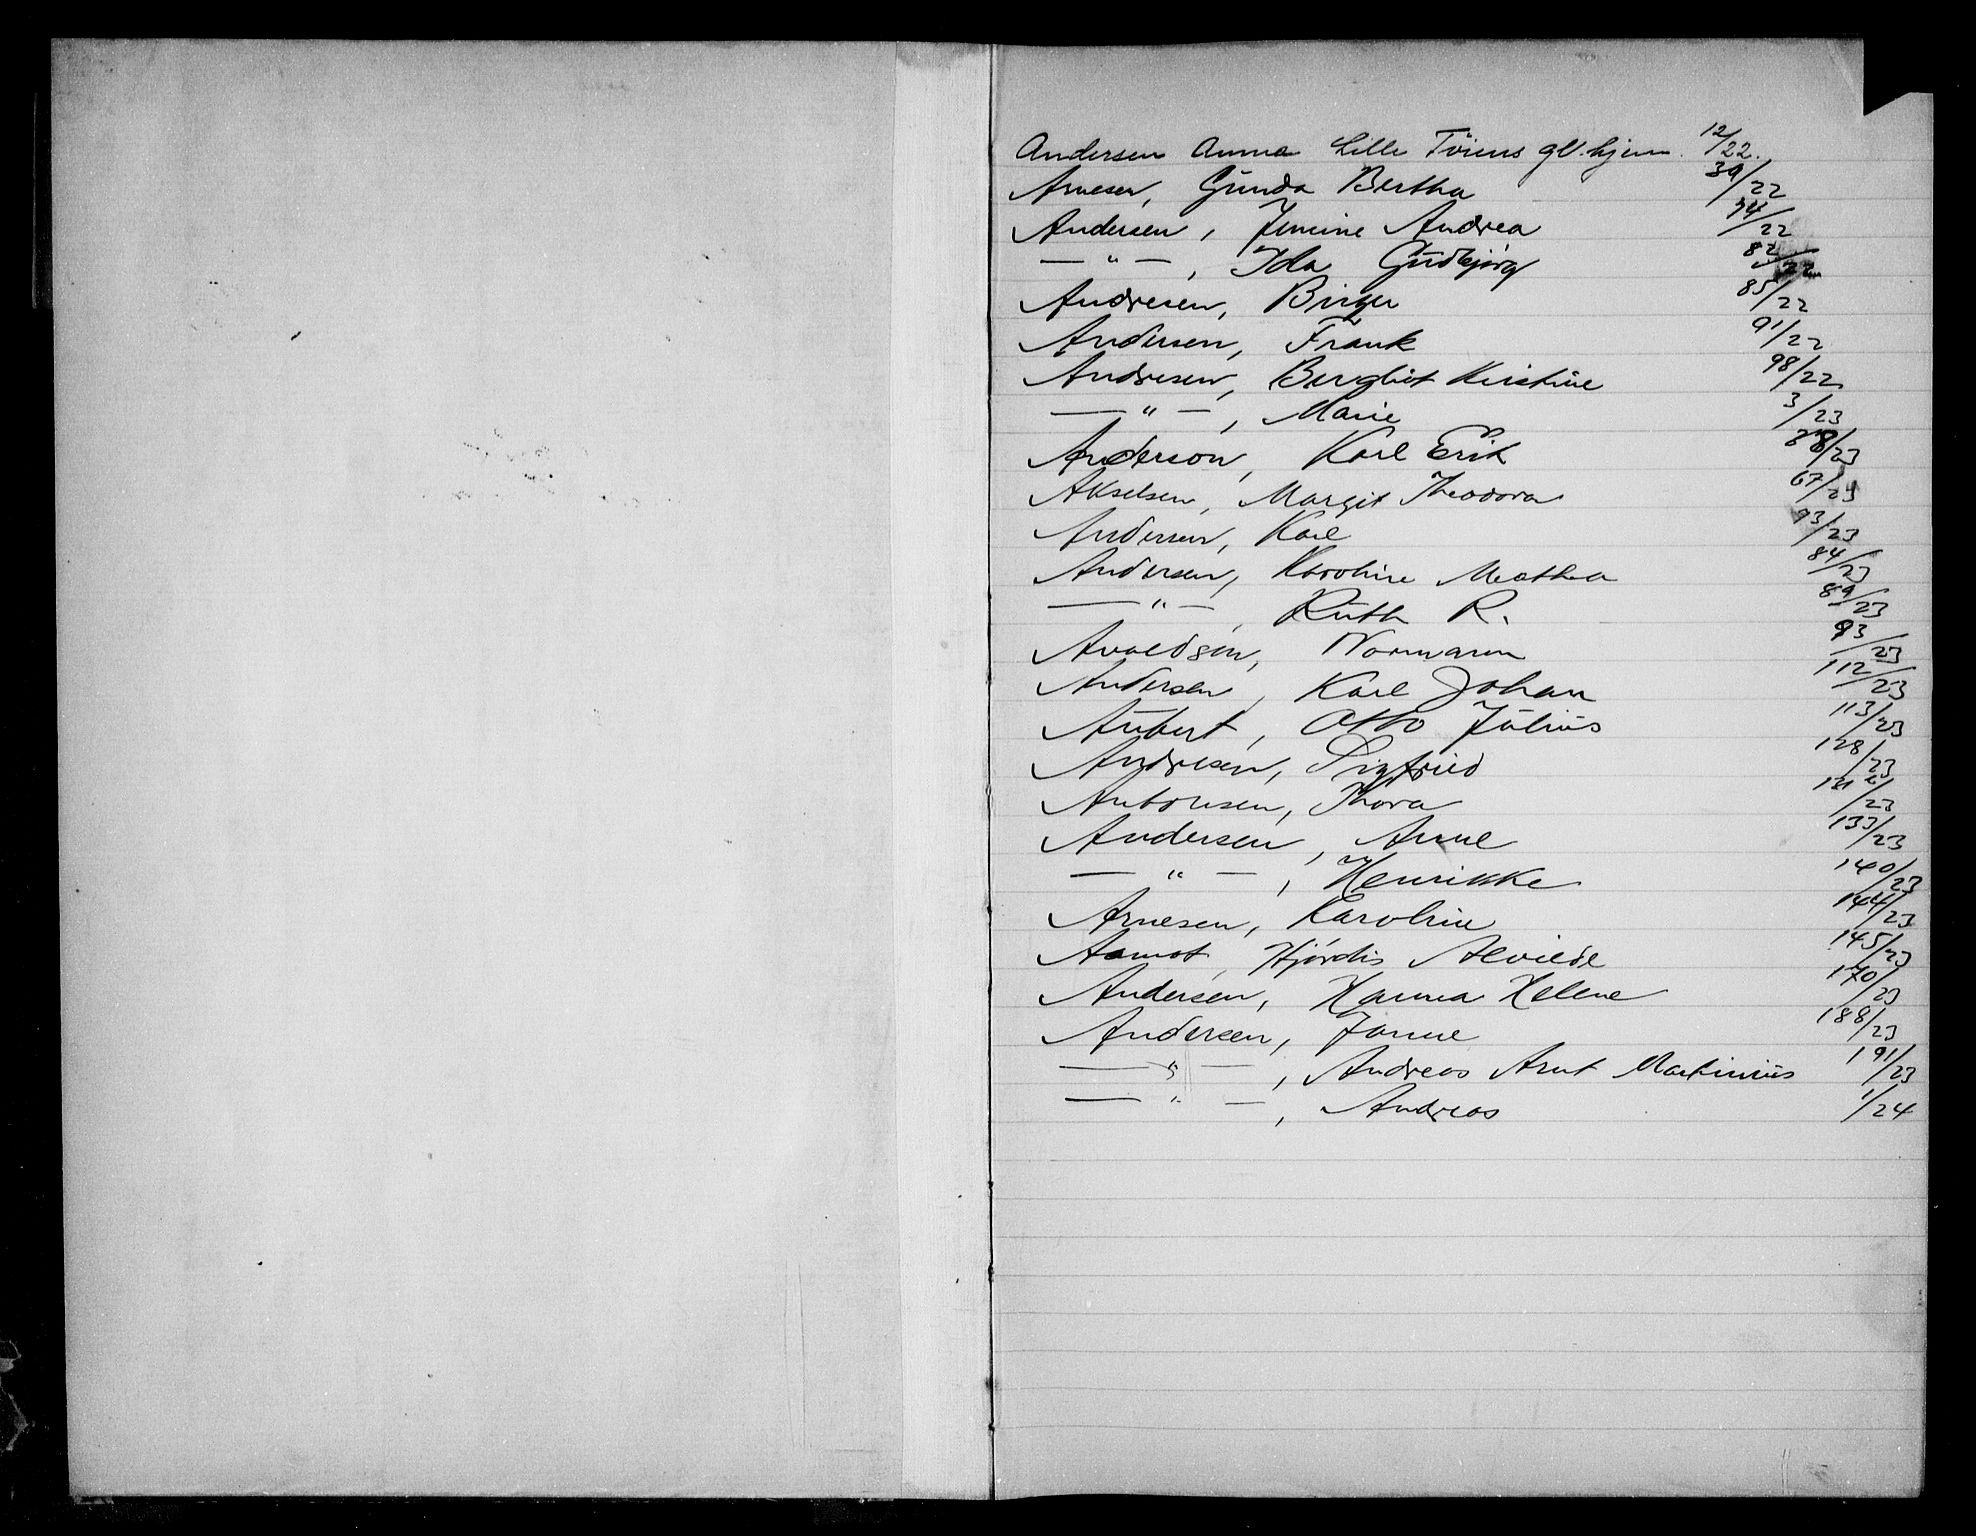 Andersen Anna Lille Töiens gl. hjem. 12/22.
Arnesen, Gunda Bertha 39/22
Andersen, Jensine Andrea 74/22
— " —, Ida Gudbjørg 82/22
Andresen, Birger 85/22
Andersen, Frank 91/22
Andresen, Bergliot Kristine 98/22
— " —, Marie 3/23
Anderson, Karl Erik /23
Akselsen, Margit Theodora 67/23
Andersen, Karl 93/23
Andersen, Karoline Mathea 84/23
— " —, Ruth R. 89/23
Avaldsen, Normann 93/23
Andersen, Karl Johan 112/23
Aubert, Otto Julius 113/23
Andresen, Sigfried 128/23
Antonsen, Thora /23
Andersen, Arne 133/23
— " —, Henrikke 140/23
Arnesen, Karoline 144/23
Aamot, Hjördis Alvilde 145/23
Andersen, Hanna Helene 170/23
Andersen, Janne 188/23
— " —, Andreas Arnt Martinius 191/23
— " —, Andreas 1/24